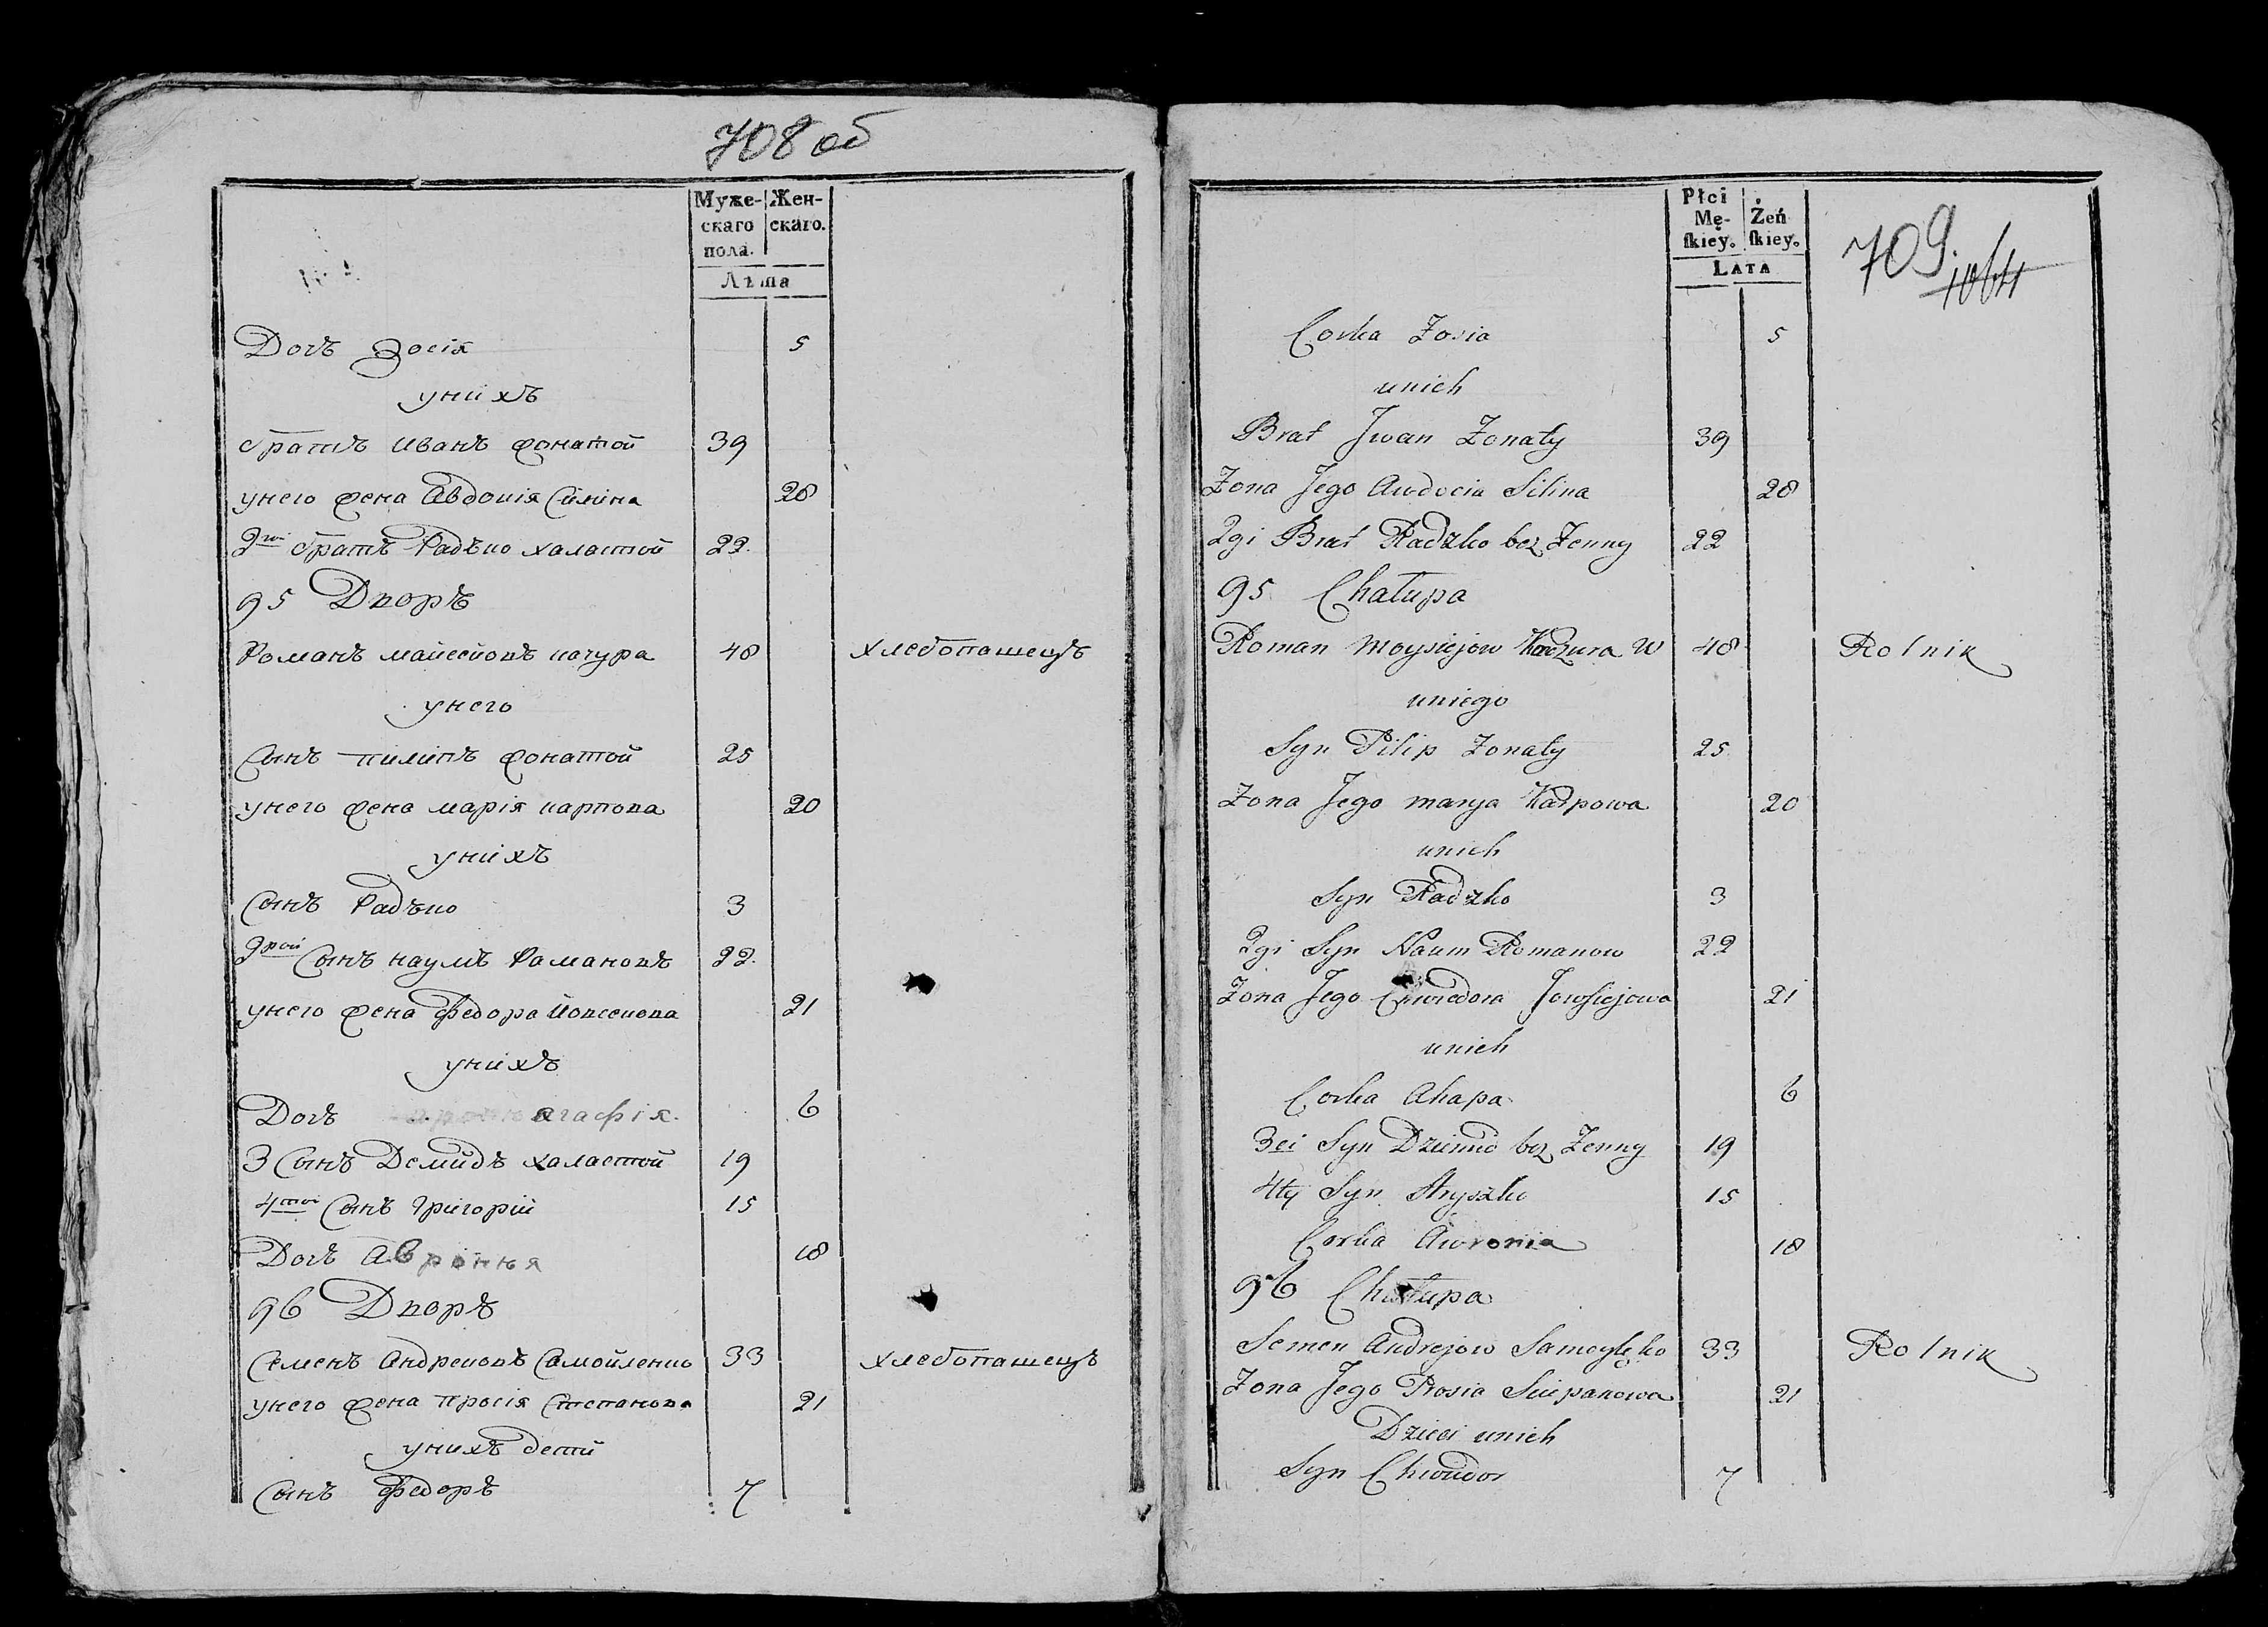 708 об
Муже- Жен-
скаго скаго.
пола.
Лѣта
Дочъ Зосія 5
унихъ
братъ иванъ жонатой 39
унего жена Авдоція Силіна 28
2гой братъ Радъко халастой 22.
95 Дворъ
Романъ майсейовъ качура 48 хлебопашецъ
унего
Сынъ пилипъ жонатой 25
унего жена марія карпова 20
унихъ
Сынъ Радъко 3
2рой Сынъ наумъ Рамановъ 22.
унего жена Федора Йовсеиова 21
унихъ
Дочъ агафія. 6
3 Сынъ Демидъ халастой 19
4той Сынъ Григорій 15
Дочъ Авронья 18
96 Дворъ
Семенъ Андреиовъ Самойленко 33 хлебопашецъ
унего жена прося Степанова 21
унихъ дети
Сынъ Федоръ 7
Płci Żeń
Mę- skiey.
skiey.
Lata
709.
1064
Corka Zosia 5
unich
Brat Jwan Zonaty 39
Zona Jego Awdocia Silina 28
2gi Brat Radzko bez Zenny 22
95 Chałupa
Roman Moysiejow Kaczura W 48 Rolnik
uniego
Syn Pilip Zonaty 25
Zona Jego marya Karpowa 20
unich
Syn Radzko 3
2gi Syn Naum Romanow 22
Zona Jego Chwiedora Jowsiejowa 21
unich
Corka Ahapa 6
3ci Syn Dziemid bez Zenny 19
4ty Syn Hryszko 15
Corka Awronia 18
96 Chałupa
Semen Andrejow Samoylęko 33 Rolnik
Zona Jego Prosia Sciepanowa 21
Dzieci unich
Syn Chwiedor 7